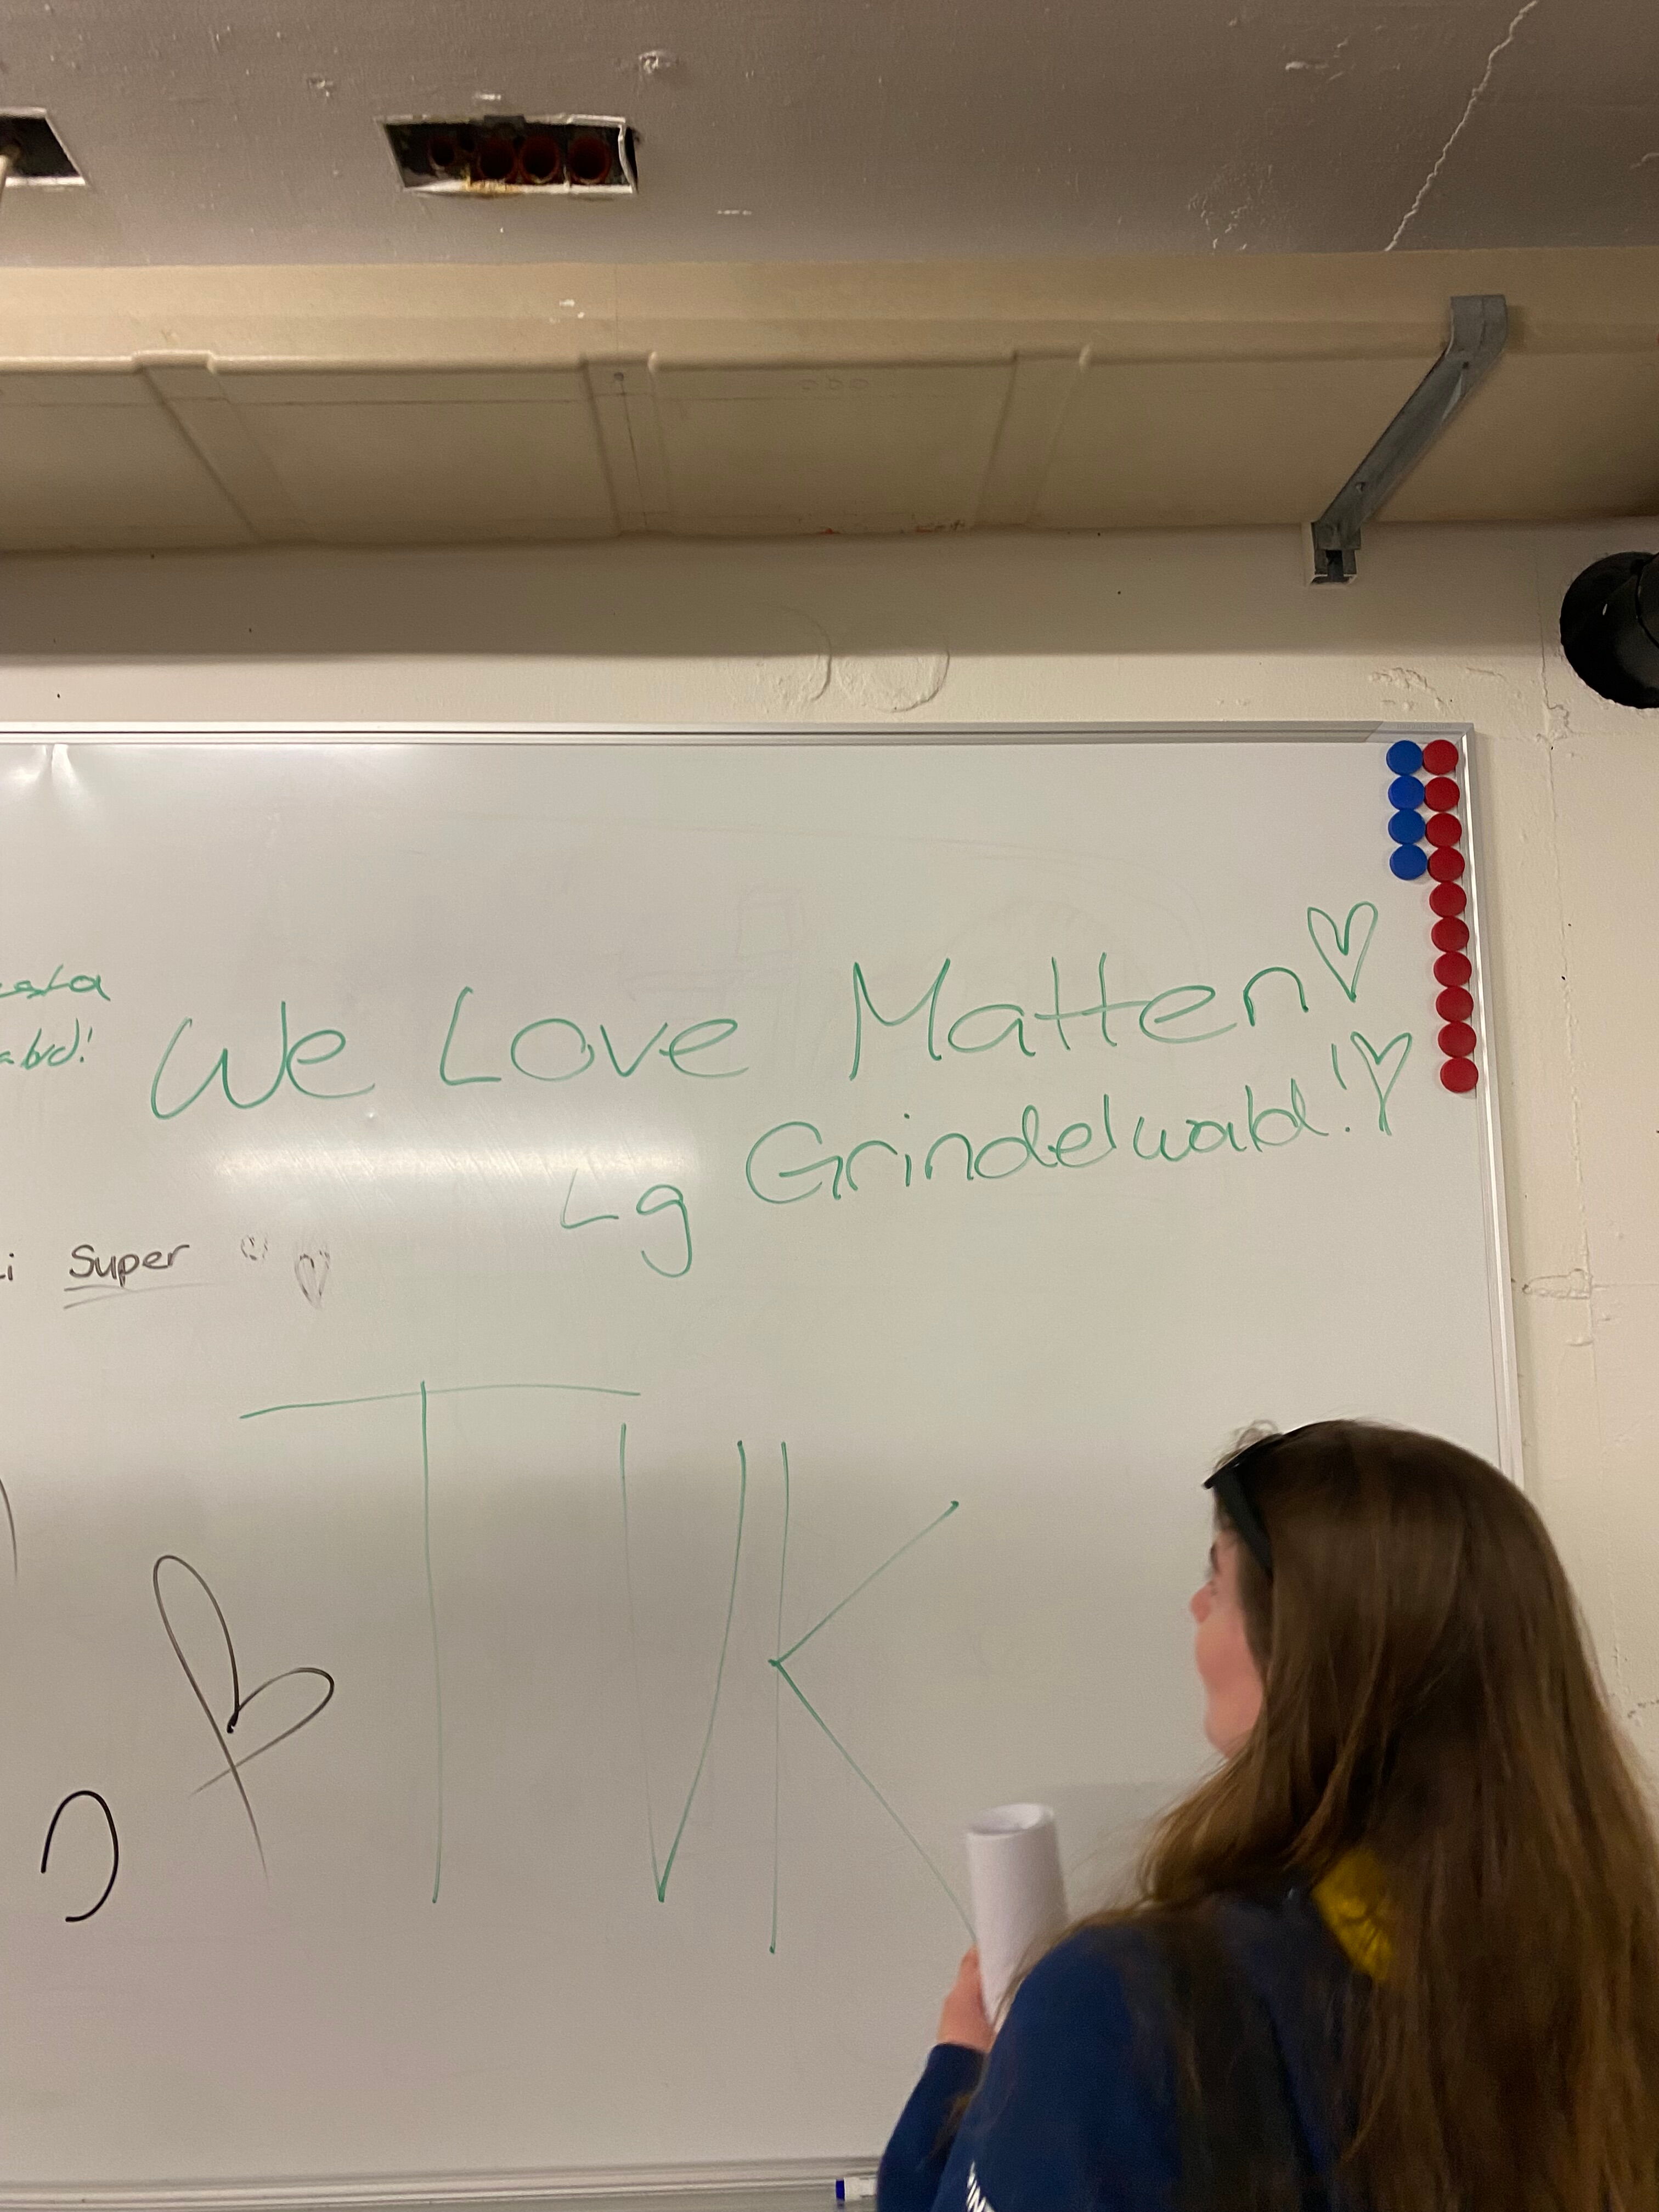 We Love Matten♡
Lg Grindelwald!♡
Super
TVK